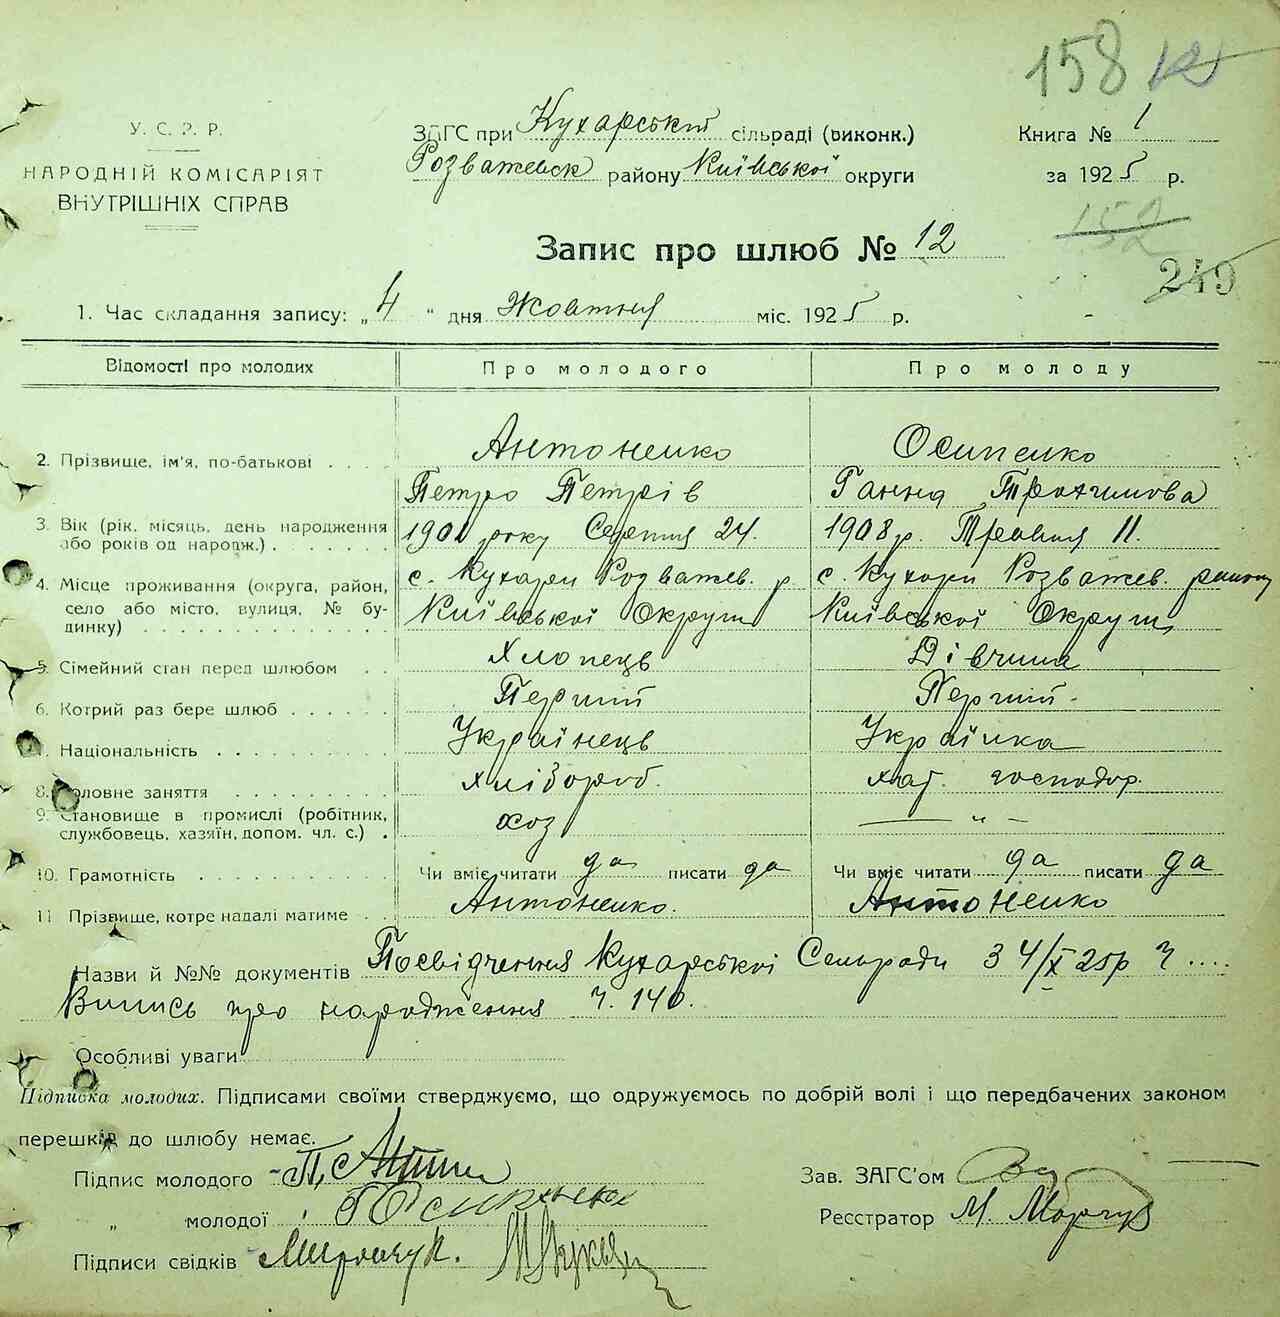 158
У. С. Р. Р.
НАРОДНІЙ КОМІСАРІЯТ
ВНУТРІШНІХ СПРАВ
ЗАГС при Кухарській сільраді (виконк.)
Розважевск району Київської округи
Книга № 1
за 1925 р.
152
249
Запис про шлюб № 12
1. Час складання запису: „4“ дня Жовтня міс. 1925 р.
Відомості про молодих Про молодого Про молоду
2. Прізвище, ім'я, по-батькові Антоненко Осипенко
Петро Петрів Ганна Трохимова
3. Вік (рік, місяць, день народження або років од народж.) 190 року Серпня 24. 1908 р. Травня 11.
4. Місце проживання (округа, район, село або місто, вулиця, № будинку) с. Кухари Розважев. р. с. Кухари Розважев. району
Київської Округи Київської Округи
5. Сімейний стан перед шлюбом Хлопець Дівчина
6. Котрий раз бере шлюб Перший Перший
7. Національність Українець Українка
8. Головне заняття хлібороб. хат. господар.
9. Становище в промислі (робітник, службовець, хазяїн, допом. чл. с.) хоз — „ —
10. Грамотність Чи вміє читати да писати да Чи вміє читати да писати да
11 Прізвище, котре надалі матиме Антоненко. Антоненко
Назви й №№ документів Посвідчення Кухарської Сельради З 4/X 25р Ч ....
Випись про народження Ч. 140.
Особливі уваги
Підписка молодих. Підписами своїми стверджуємо, що одружуємось по добрій волі і що передбачених законом
перешкід до шлюбу немає.
Підпис молодого П.
„ молодої Г Осипенко
Підписи свідків Мирончук.
Зав. ЗАГС'ом
Реєстратор М.